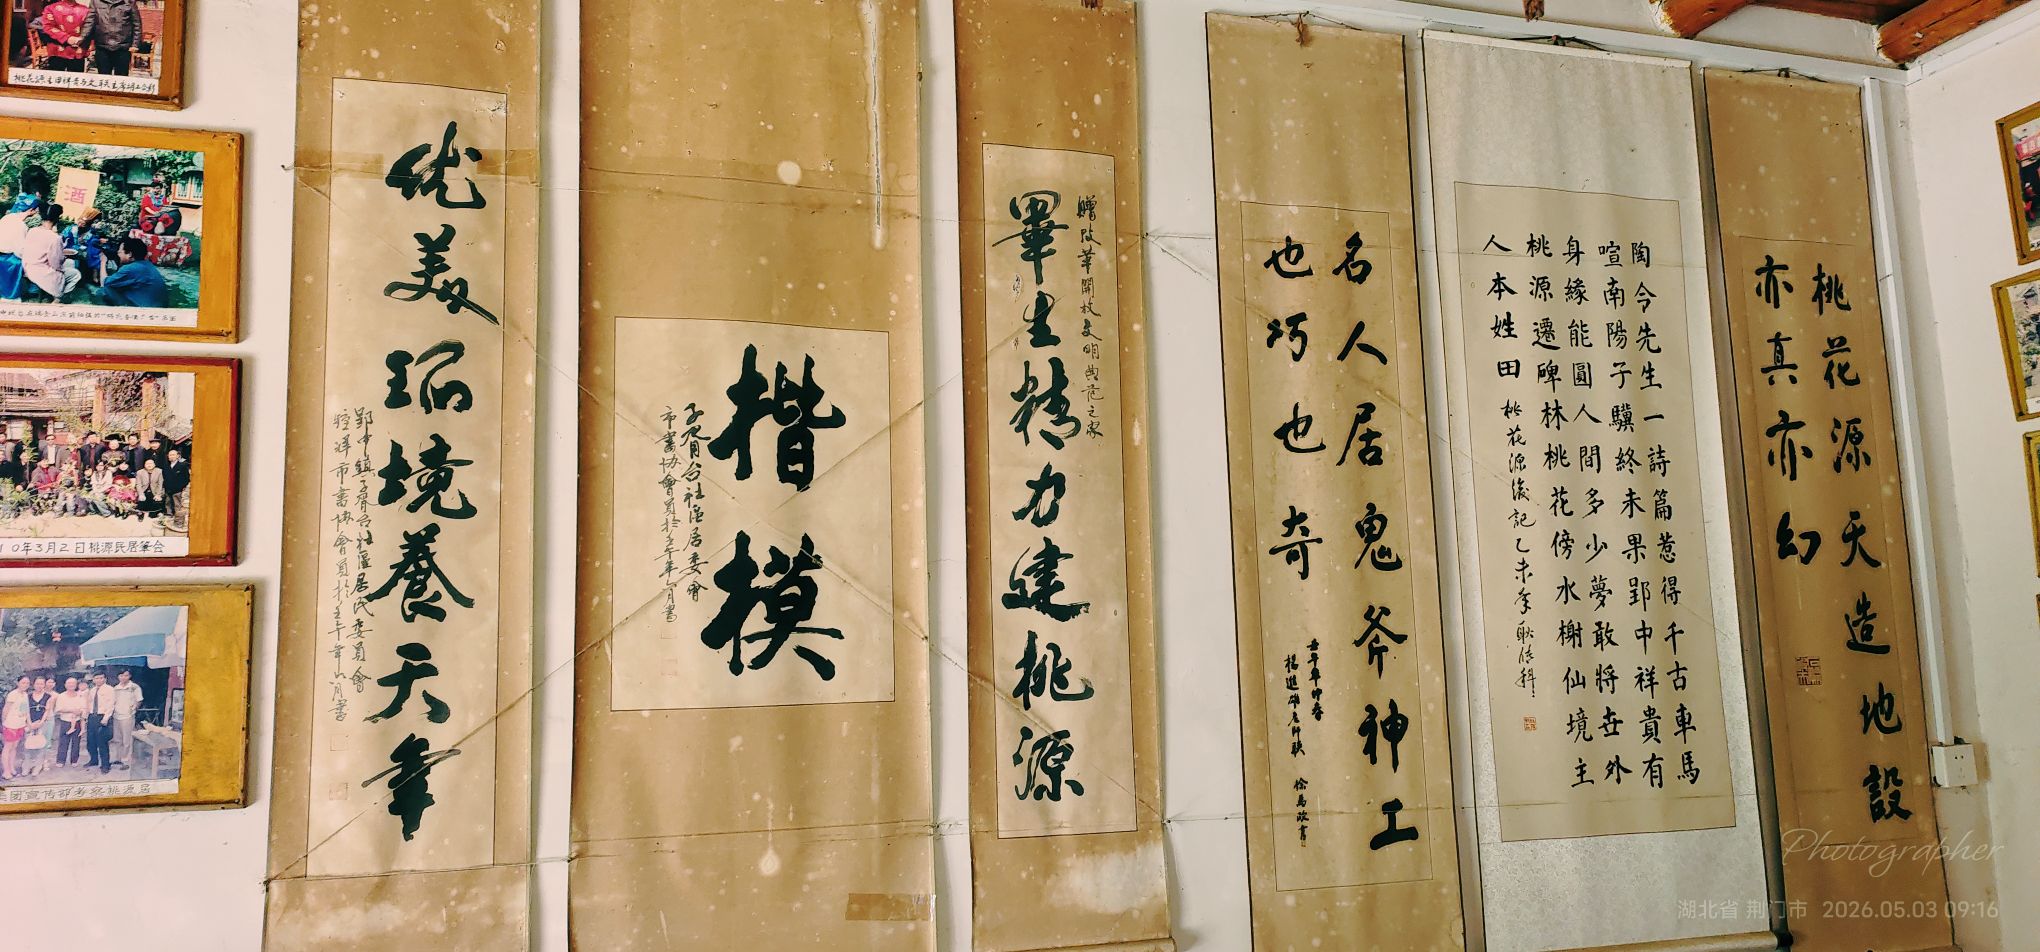 桃花源天造地設
亦真亦幻
陶令先生一詩篇惹得千古車馬
喧南陽子驥終未果郢中祥貴有
身緣能圓人間多少夢敢將世外
桃源遷碑林桃花傍水榭仙境主
人本姓田
桃花源後記乙未季
名人居鬼斧神工
也巧也奇
壬午年仲春
徐為政書
開放文明典范之家
畢生精力建桃源
楷模
子胥台社區居委會
市書協會員於壬午年
優美環境養天年
郢中鎮子胥台社區居民委員會
市書協會員於壬午年八月書
酒
10年3月2日桃源民居筆会
集团宣传部考察桃源居
Photographer
湖北省 荆门市 2026.05.03 09:16